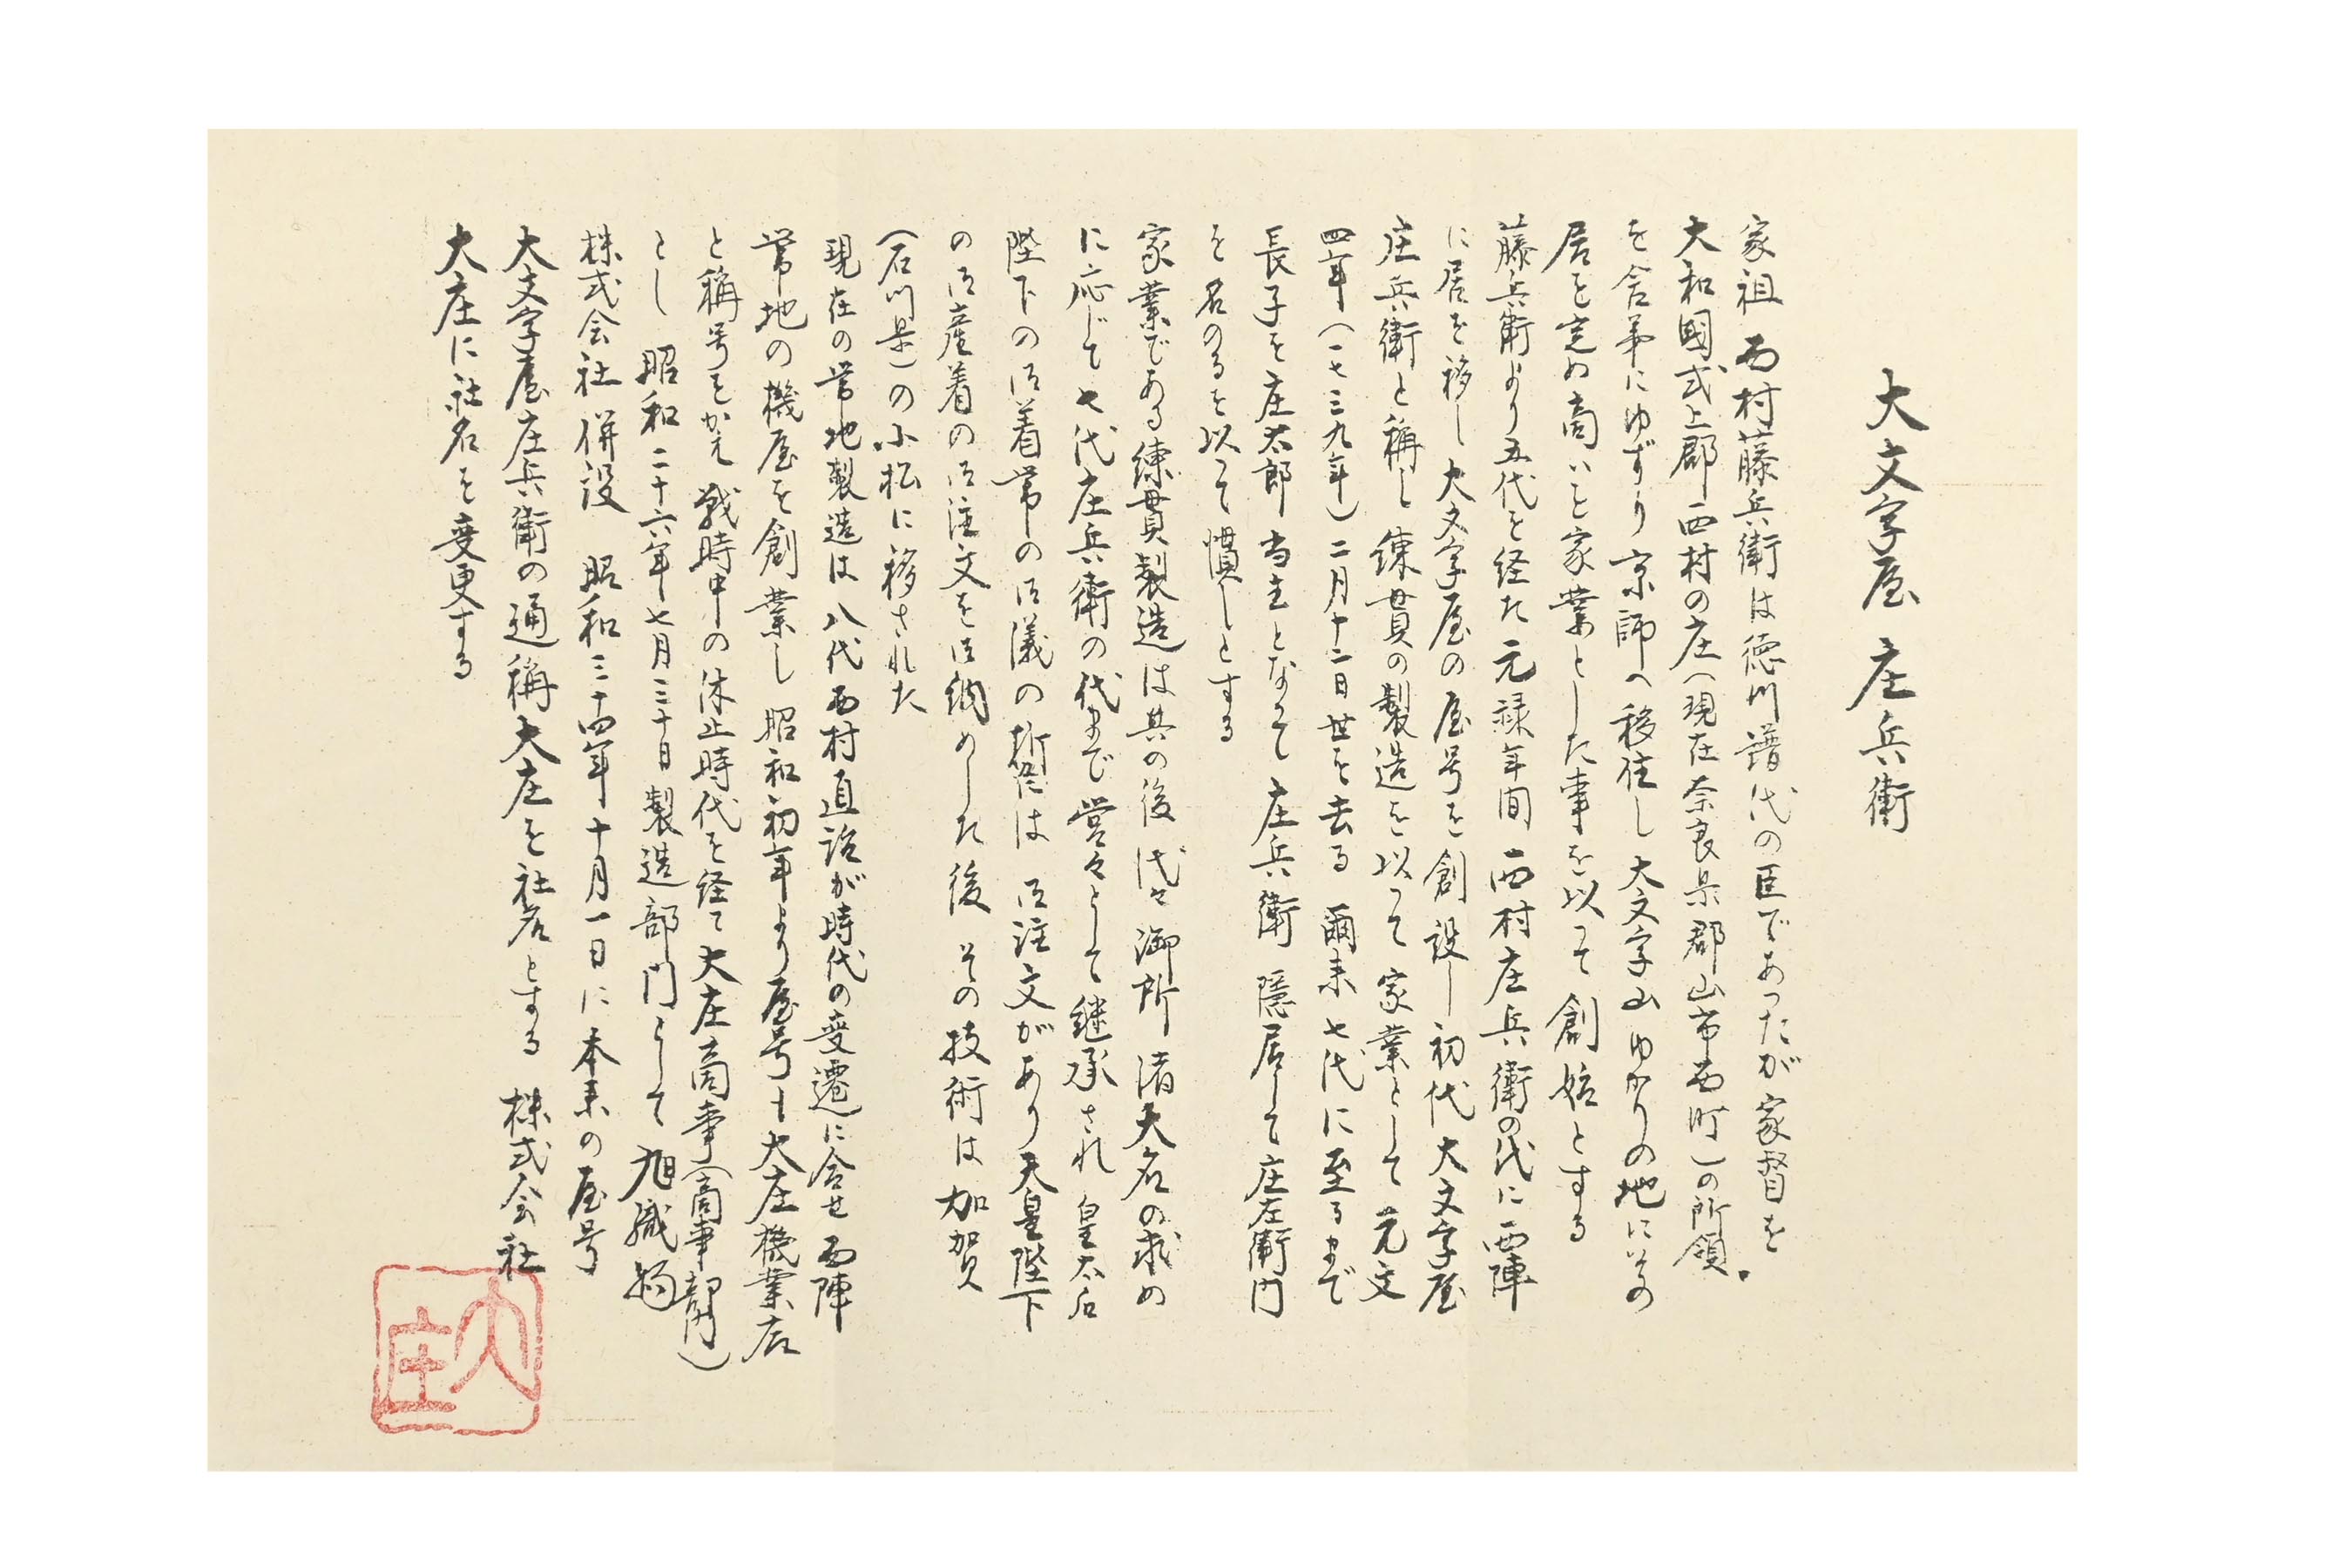 大文字屋 庄兵衛
家祖 西村藤兵衛は徳川譜代の臣であったが家督を
大和國式上郡西村の庄(現在奈良県郡山市西町)の所領
を舎弟にゆずり京師へ移住し大文字山ゆかりの地に茲の
居を定め商いを家業とした事を以って創始とする
藤兵衛より五代を経た元禄年間 西村庄兵衛の代に西陣
に居を移し 大文字屋の屋号を創設し 初代大文字屋
庄兵衛と称し 練貫の製造を以って家業として 元文
四年(一七三九年)二月十二日世を去る 爾来七代に至るまで
長子を庄太郎 当主となって 庄兵衛 隠居して庄左衛門
を名のるを以って慣しとする
家業である練貫製造は其の後代々御所 諸大名の求め
に応じて七代庄兵衛の代まで営々として継承され 皇太后
陛下の御着帯の御儀の折には 御注文があり天皇陛下
の御産着の御注文を御納めした後 その技術は加賀
(石川県)の小松に移された
現在の常地製造は 八代西村直治が時代の変遷に合せ西陣
常地の機屋を創業し 昭和初年より屋号を大庄機業店
と称号をかえ 戦時中の休止時代を経て大庄商事(商事部門)
とし 昭和二十六年七月三十日製造部門として旭織物
株式会社併設 昭和三十四年十月一日に本来の屋号
大文字屋庄兵衛の通称大庄を社名とする 株式会社
大庄に社名を変更する
大庄